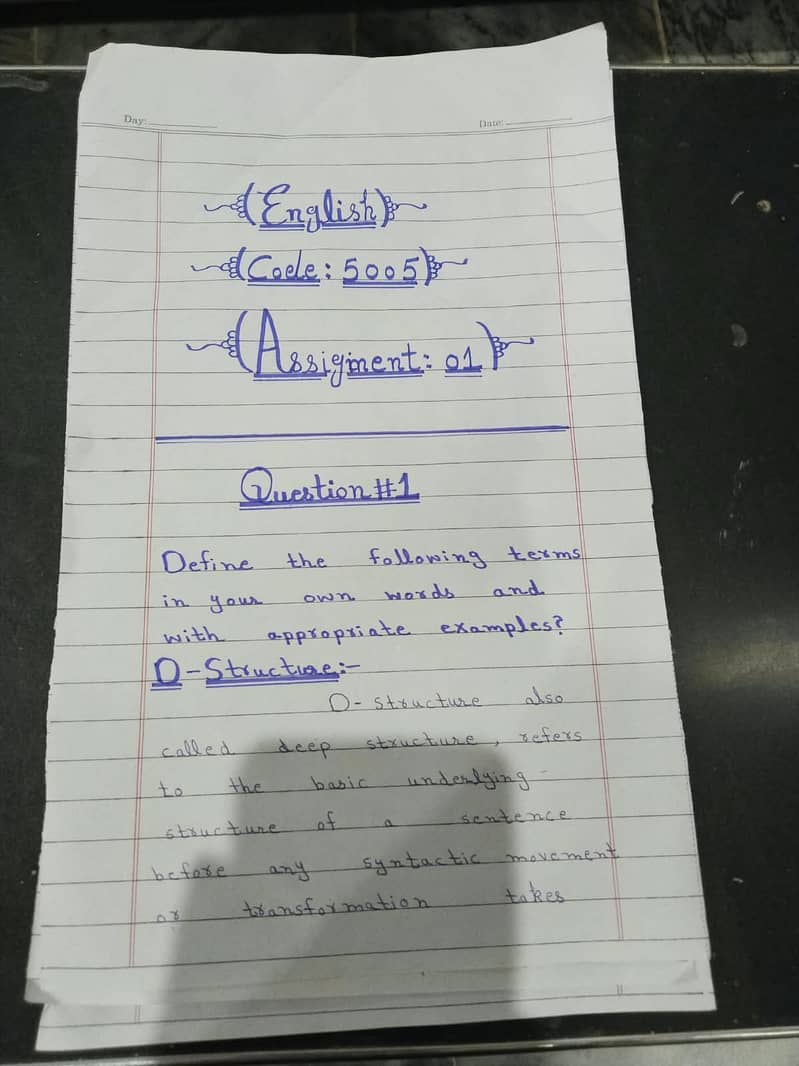 Day:
Date:
(English)
(Code: 5005)
(Assigment: 01)
Question #1
Define the following terms
in your own words and
with appropriate examples?
D-Structure:-
D- structure also
called deep structure, refers
to the basic underlying
structure of a sentence
before any syntactic movement
or transformation takes